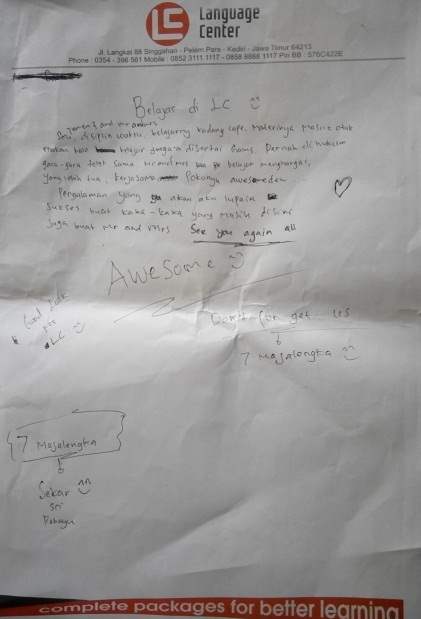 LC Language
Center
Jl. Langkat 88 Singgahan - Pelem Pare - Kediri - Jawa Timur 64213
Phone : 0354 - 396 561 Mobile : 0852 3111 1117 - 0858 6666 1117 Pin BB : 576C422E
Belajar di LC
and mr
Seru, disiplin waktu, belajarnya kadang cape. Materinya
belajar dengan disertai Games. Pernah di hukum
gara-gara telat sama mr and mrs belajar menghargai,
yang lebih tua, kerjasama Pokonya awesome deh
Pengalaman yang akan aku lupain
Sukses buat kaka-kaka yang masih disini
Juga buat mr and mrs See you again all
AWesome
Good
LC
Don't for get us
7 Majalengka
7 Majalengka
Sekar
Sri
Rahayu
complete packages for better learning